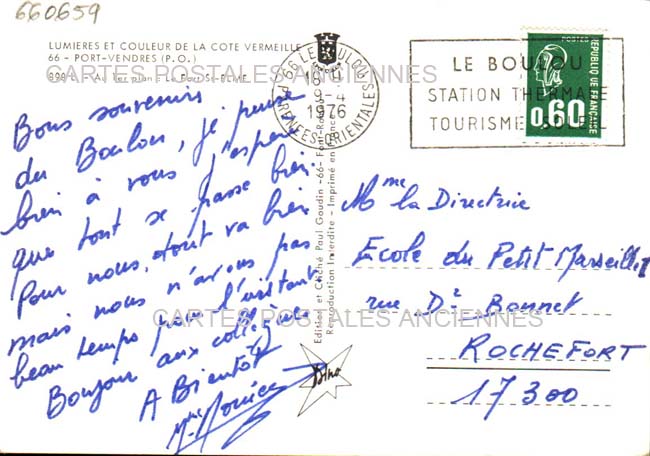 660659
LUMIERES ET COULEUR DE LA COTE VERMEILLE
66 - PORT-VENDRES (P.O.)
CARTES POSTALES ANCIENNES
Bons souvenirs
du Boulou, je pense
bien à vous j'espère
que tout se passe bien.
Pour nous, tout va bien
mais nous n'avons pas
beau temps pour l'instant
Bonjour aux collègues
A Bientôt
Mme
66 LE BOULOU
1976
PYRENEES-ORIENTALES
Edition et Cliché Paul Gaudin -66- Font-Romeu
Reproduction Interdite - Imprimé en
LE BOULOU
STATION THERMALE
TOURISME SOLEIL
REPUBLIQUE FRANCAISE
0,60
Mme la Directrice
Ecole du Petit Marseille
rue Dr Bonnet
ROCHEFORT
17300
CARTES POSTALES ANCIENNES